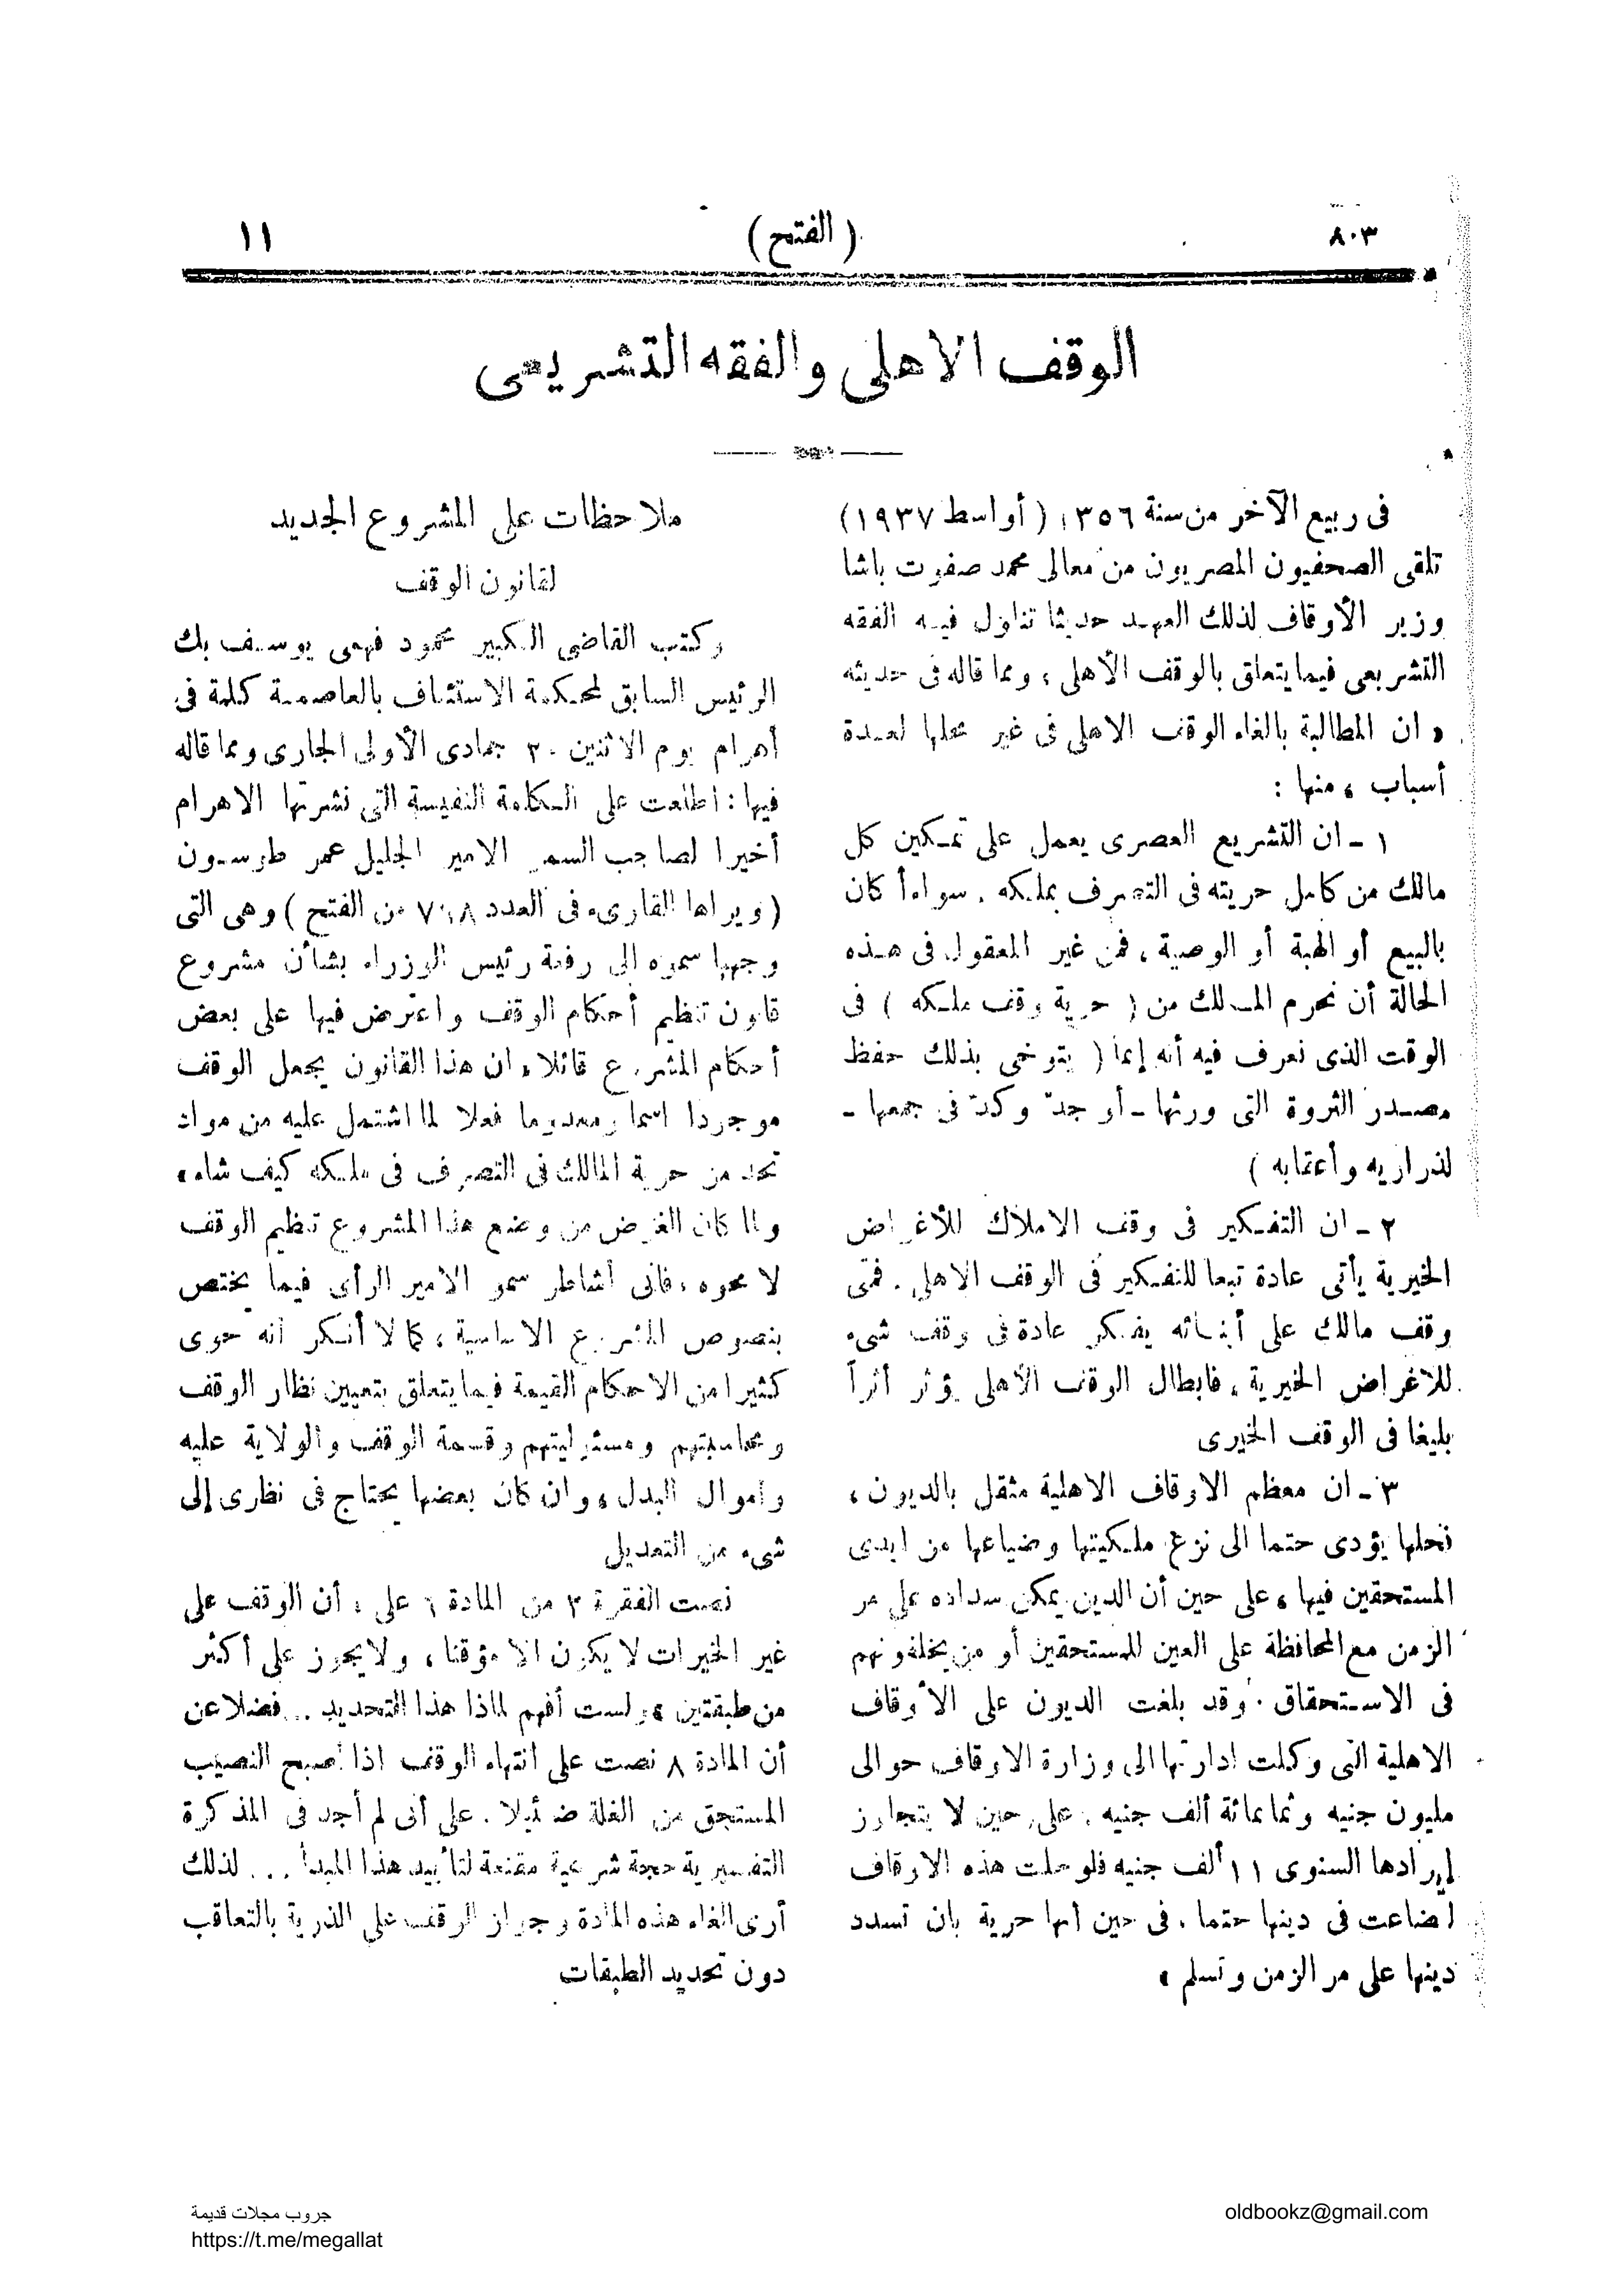 ٨٠٣
(الفتح)
١١
الوقف الاهلى والفقه التشريعى
فى ربيع الآخر من سنة ١٣٥٦ (أواسط ١٩٣٧)
تلقى الصحفيون المصريون من معالى محمد صفوت باشا
وزير الأوقاف لذلك العهد حديثا تناول فيه الفقه
التشريعى فيما يتعلق بالوقف الأهلى، ومما قاله فى حديثه
« ان المطالبة بالغاء الوقف الاهلى فى غير محلها لعدة
أسباب ، منها :
١ ـ ان التشريع العصرى يعمل على تمكين كل
مالك من كامل حريته فى التصرف بملكه . سواءاً كان
بالبيع أو الهبة أو الوصية ، فمن غير المعقول فى هذه
الحالة أن نحرم المالك من ( حرية وقف ملكه ) فى
الوقت الذى نعرف فيه أنه إنما ( يتوخى بذلك حفظ
مصدر الثروة التى ورثها ـ أو جدّ وكدّ فى جمعها ـ
لذراريه وأعقابه )
٢ ـ ان التفكير فى وقف الاملاك للأغراض
الخيرية يأتى عادة تبعا للتفكير فى الوقف الاهلى . فمتى
وقف مالك على أبنائه يفكر عادة فى وقف شىء
للاغراض الخيرية ، فابطال الوقف الأهلى يؤثر أثراً
بليغا فى الوقف الخيرى
٣ ـ ان معظم الاوقاف الاهلية مثقل بالديون ،
فحلها يؤدى حتما الى نزع ملكيتها وضياعها من ايدى
المستحقين فيها ، على حين أن الدين يمكن سداده على مر
الزمن مع المحافظة على العين للمستحقين أو من يخلفونهم
فى الاستحقاق . وقد بلغت الديون على الأوقاف
الاهلية التى وكلت ادارتها الى وزارة الاوقاف حوالى
مليون جنيه وثمانمائة ألف جنيه . على حين لا يتجاوز
إيرادها السنوى ١١ ألف جنيه فلو حلت هذه الاوقاف
لضاعت فى دينها حتما . فى حين أنها حرية بان تسدد
دينها على مر الزمن وتسلم »
ملاحظات على المشروع الجديد
لقانون الوقف
وكتب القاضى الكبير محمود فهمى يوسف بك
الرئيس السابق لمحكمة الاستئناف بالعاصمة كلمة فى
أهرام يوم الاثنين ٢٠ جمادى الأولى الجارى ومما قاله
فيها : اطلعت على الكلمة النفيسة التى نشرتها الاهرام
أخيرا لصاحب السمو الامير الجليل عمر طوسون
( ويراها القارىء فى العدد من الفتح ) وهى التى
وجهها سموه الى رفعة رئيس الوزراء بشأن مشروع
قانون تنظيم أحكام الوقف واعترض فيها على بعض
أحكام المشروع قائلا « ان هذا القانون يجعل الوقف
موجودا اسما ومعدوما فعلا لما اشتمل عليه من مواد
تحد من حرية المالك فى التصرف فى ملكه كيف شاء »
ولما كان الغرض من وضع هذا المشروع تنظيم الوقف
لا محوه ، فانى أشاطر سمو الامير الرأى فيما يختص
بنصوص المشروع الاساسية ، كما لا أنكر انه حوى
كثيرا من الاحكام القيمة فيما يتعلق بتعيين نظار الوقف
ومحاسبتهم ومسئوليتهم وقسمة الوقف والولاية عليه
وأموال البدل ، وان كان بعضها يحتاج فى نظرى إلى
شىء من التعديل
نصت الفقرة ٣ من المادة ٦ على « أن الوقف على
غير الخيرات لا يكون الا مؤقتا ، ولا يجوز على أكثر
من طبقتين » ولست أفهم لماذا هذا التحديد ... فضلا عن
أن المادة ٨ نصت على انتهاء الوقف اذا أصبح النصيب
المستحق من الغلة ضئيلا . على أنى لم أجد فى المذكرة
التفسيرية حجة شرعية مقنعة لتأييد هذا المبدأ ... لذلك
أرى الغاء هذه المادة وجواز الوقف على الذرية بالتعاقب
دون تحديد الطبقات
جروب مجلات قديمة
https://t.me/megallat
oldbookz@gmail.com